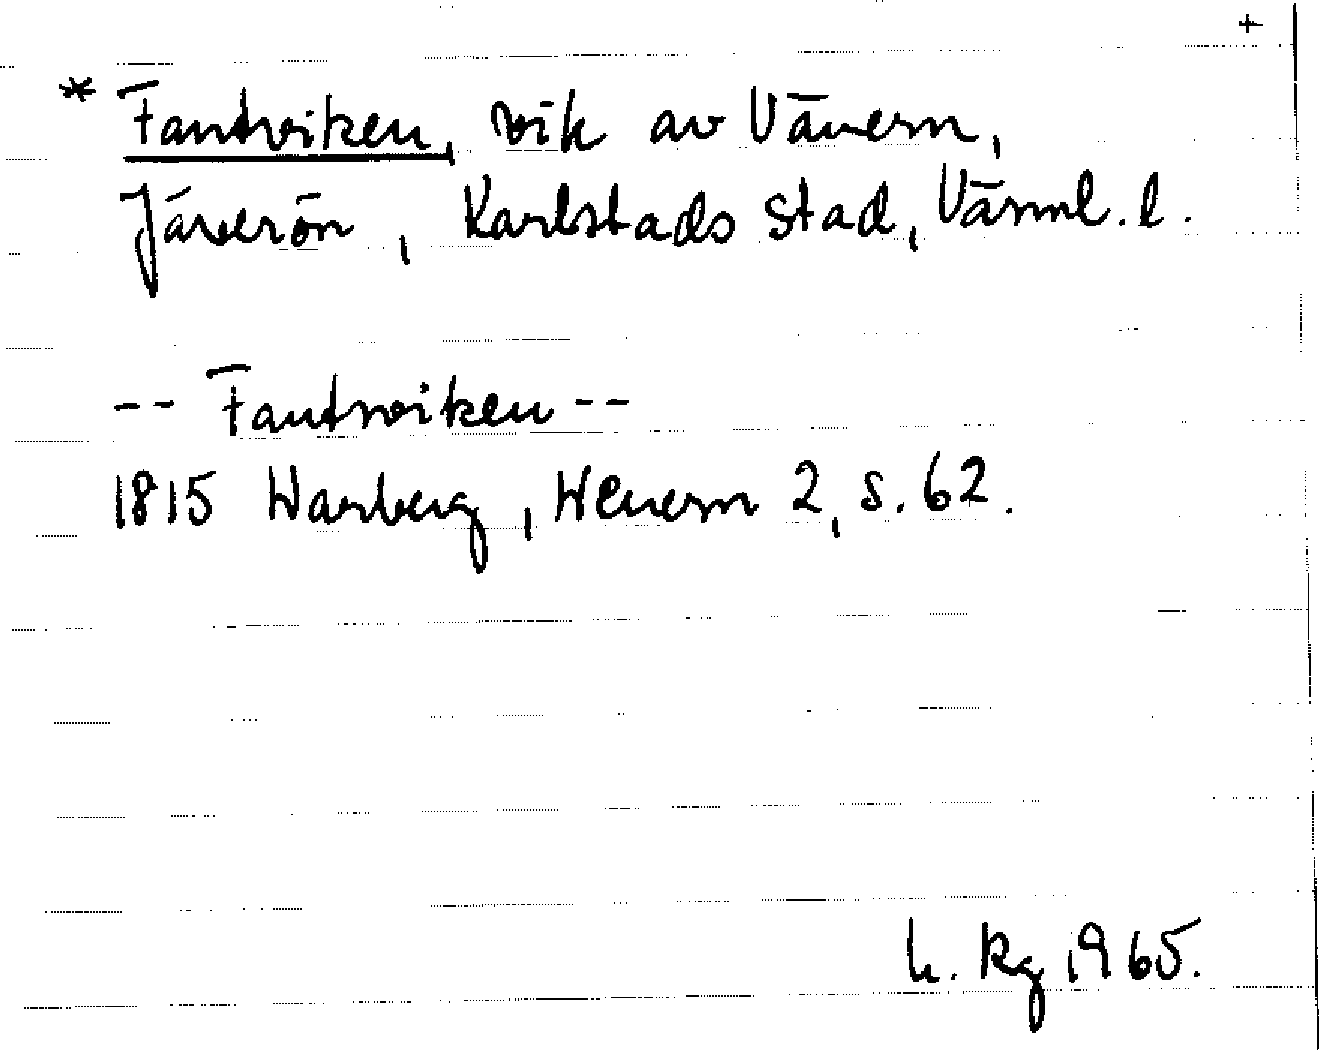 +
* Fantviken, vik av Vänern,
Järerön, Karlstads stad, Värml. l.
-- Fantwiken --
1815 Warberg, Wenern 2, s. 62.
h. Rg 1965.